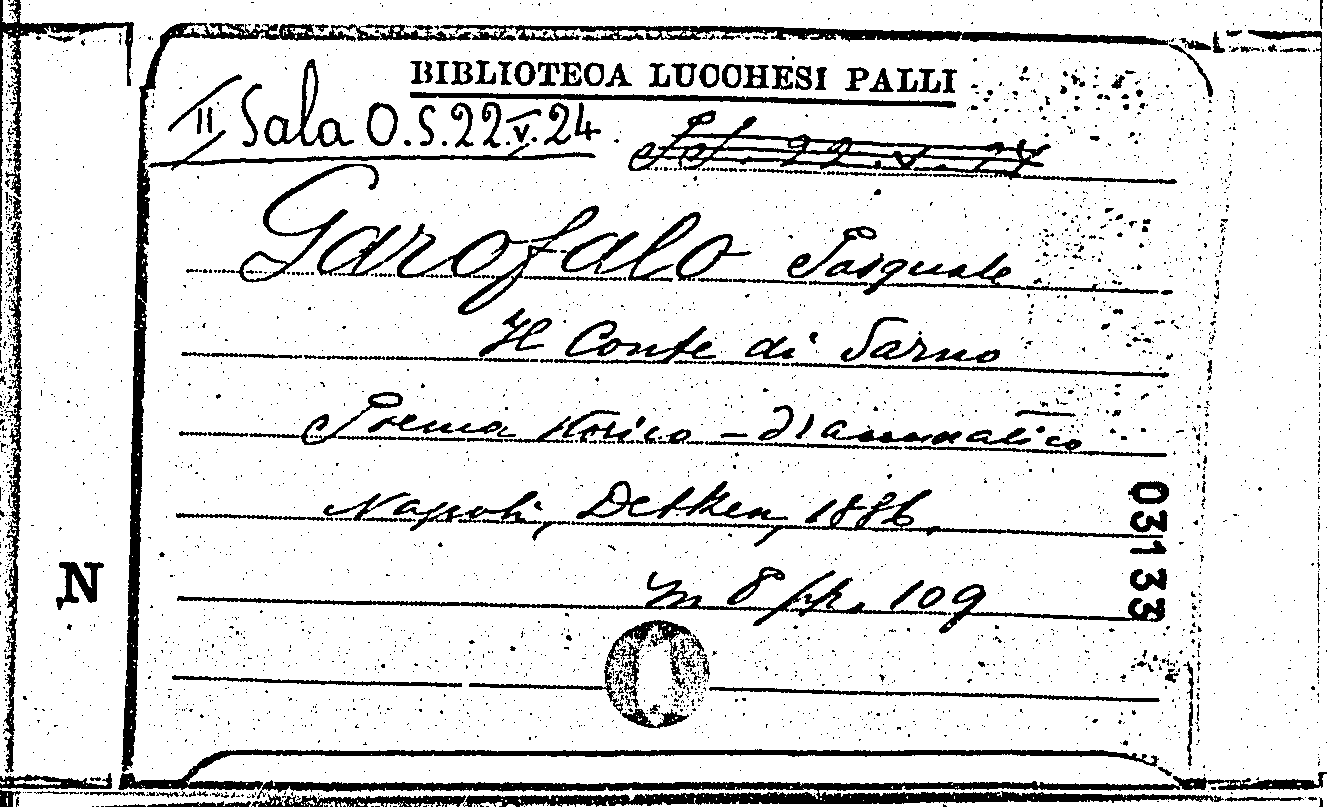 BIBLIOTECA LUCCHESI PALLI
II Sala O.S.22.V.24.
Garofalo Pasquale
Il Conte di Sarno
Poema storico - drammatico
Napoli, Detken, 1886.
in 8 pp. 109
03133
N